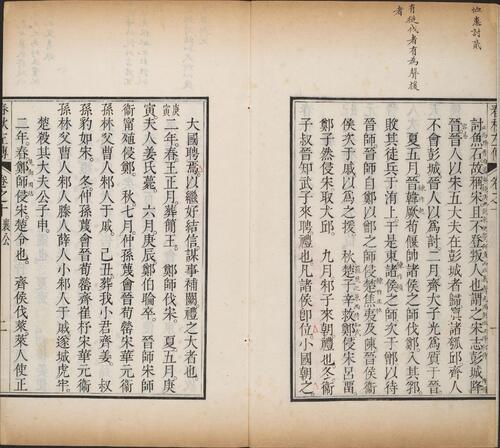 也惠討貳
有從伐者有為聲援
者
討魚石故稱宋且不登叛人也謂之宋志彭城降
晉晉人以宋五大夫在彭城者歸寘諸瓠邱齊人
不會彭城晉人以為討二月齊大子光為質于晉
夏五月晉韓厥荀偃帥諸侯之師伐鄭入其郛
敗其徒兵于洧上于是東諸侯之師次于鄫以待
晉師晉師自鄭以鄫之師侵楚焦夷及陳晉侯衛
侯次于戚以為之援 秋楚子辛救鄭侵宋呂留
鄭子然侵宋取犬邱 九月邾子來朝禮也冬衛
子叔晉知武子來聘禮也凡諸侯即位小國朝之
大國聘焉以繼好結信謀事補闕禮之大者也。
庚
二年。春王正月。葬簡王。 鄭師伐宋。 夏五月庚
寅。夫人姜氏薨。 六月庚辰。鄭伯睔卒。 晉師宋師
衛甯殖侵鄭。 秋七月仲孫蔑會晉荀罃宋華元衛
孫林父曹人邾人于戚。 己丑葬我小君齊姜。 叔
孫豹如宋。 冬仲孫蔑會晉荀罃齊崔杼宋華元衛
孫林父曹人邾人滕人薛人小邾人于戚遂城虎牢。
楚殺其大夫公子申。
二年春鄭師侵宋楚令也。 齊侯伐萊萊人使正
春秋左傳 卷之十 襄公 二